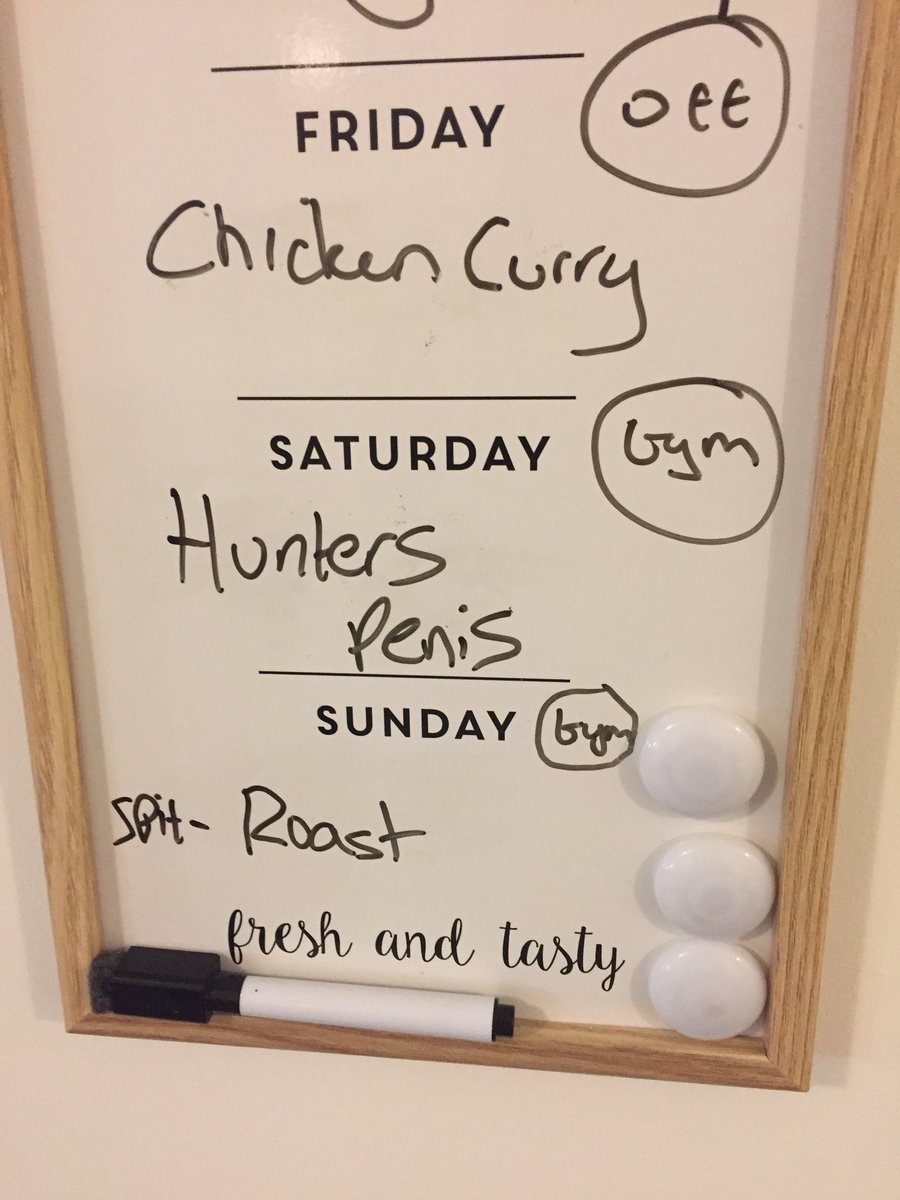 Off
FRIDAY
Chicken Curry
Gym
SATURDAY
Hunters
Penis
SUNDAY
Gym
Spit- Roast
fresh and tasty